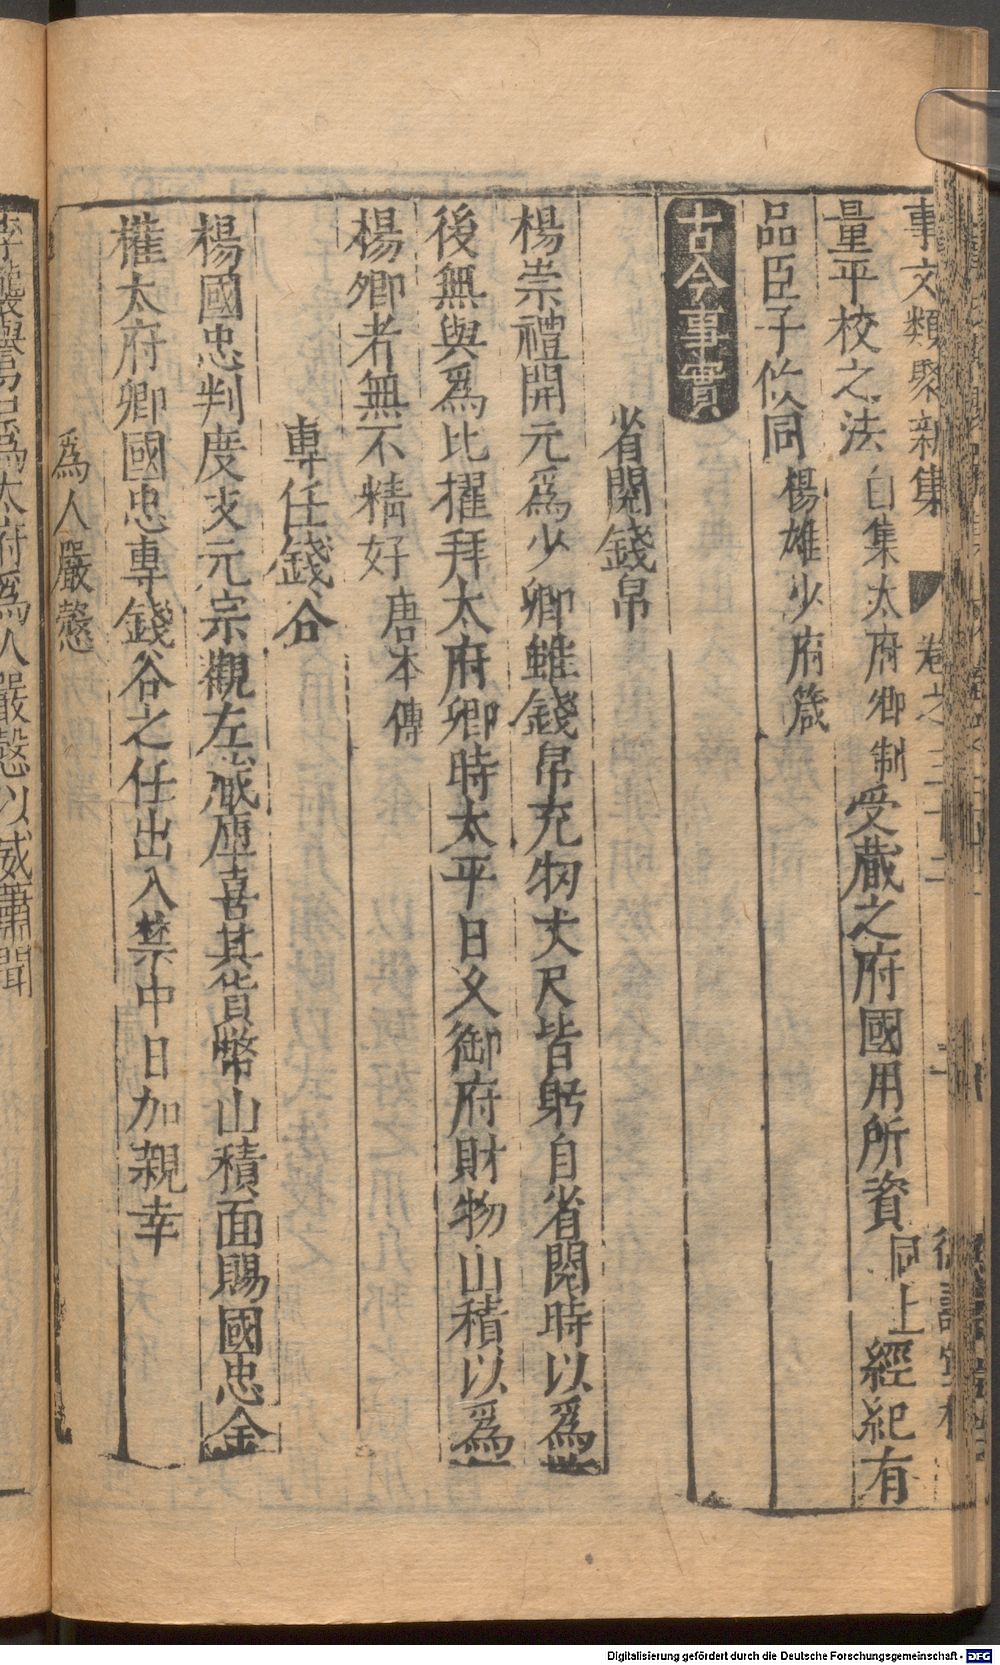 事文類聚新集 卷之三十二
量平校之法 白集太府卿制 受藏之府國用所資 同上 經紀有
品臣子攸同 楊雄少府箴
古今事實
省閱錢帛
楊崇禮開元爲少卿雖錢帛充牣丈尺皆躬自省閱時以爲
後無與爲比擢拜太府卿時太平日久御府財物山積以爲
楊卿者無不精好 唐本傳
專任錢谷
楊國忠判度支元宗觀左藏庫喜其貨幣山積面賜國忠金
權太府卿國忠專錢谷之任出入禁中日加親幸
爲人嚴愨
爲太府爲人嚴愨以威肅聞
Digitalisierung gefördert durch die Deutsche Forschungsgemeinschaft - DFG